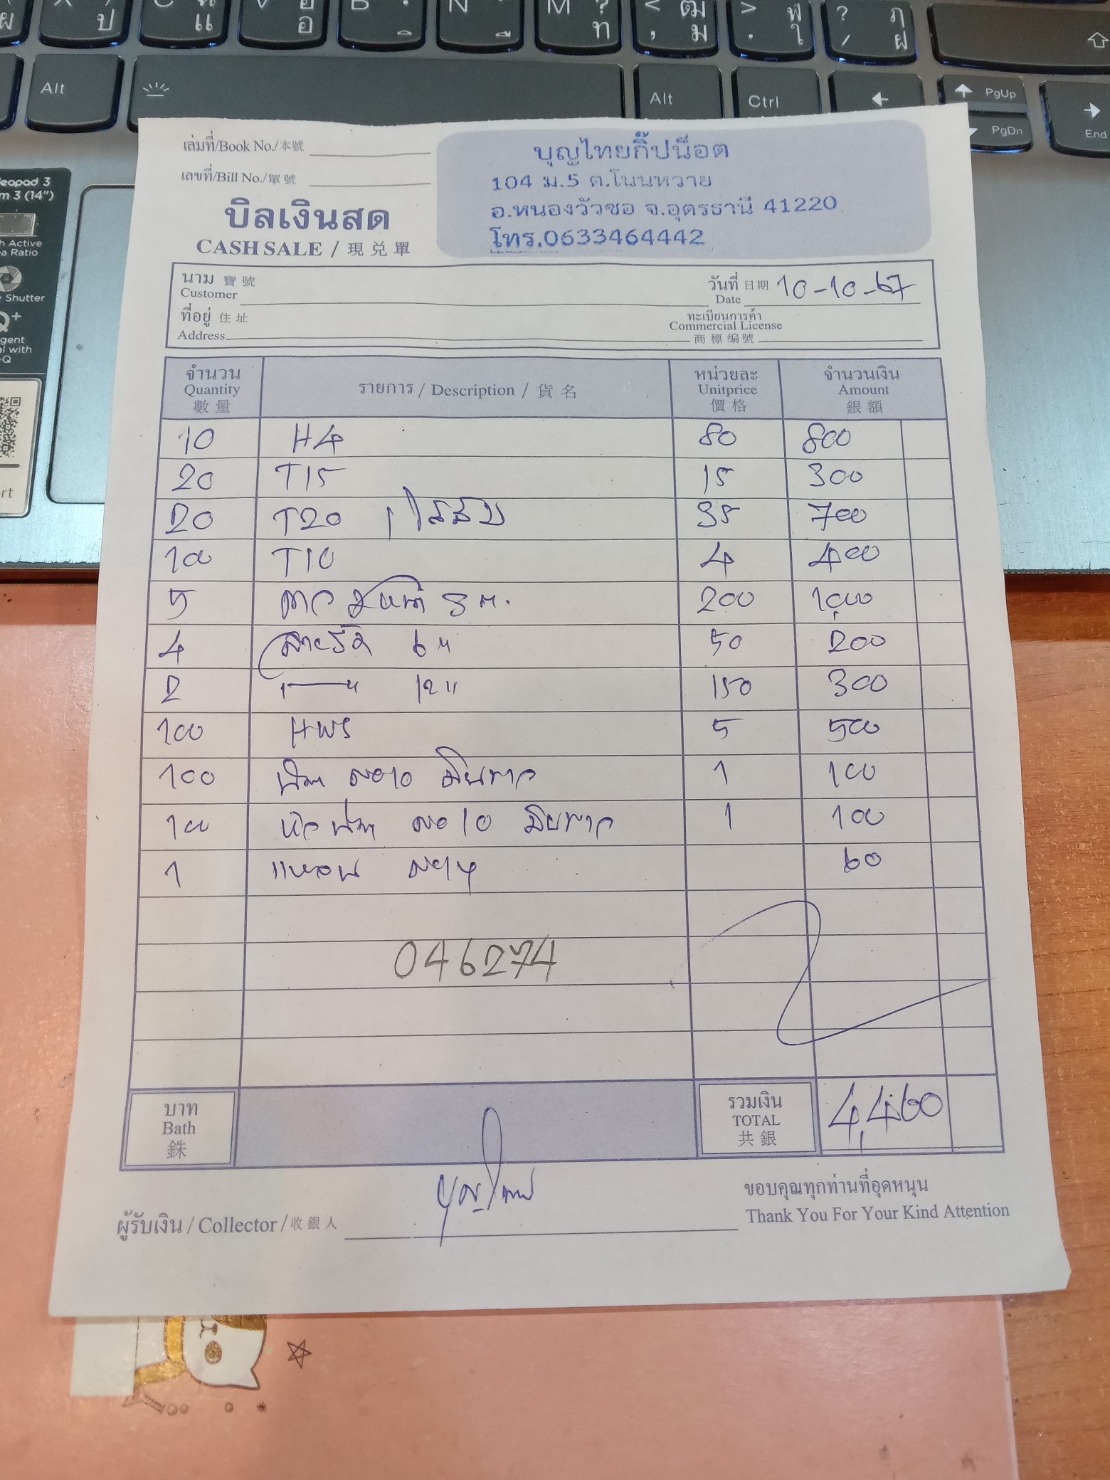 Alt
Alt
Ctrl
PgUp
PgDn
End
เล่มที่/Book No./本號
เลขที่/Bill No./單號
บิลเงินสด
CASH SALE / 現兌單
บุญไทยกิ๊ปน็อต
104 ม.5 ต.โนนหวาย
อ.หนองวัวซอ จ.อุดรธานี 41220
โทร.0633464442
นาม 寶號
Customer
วันที่ 日期 10-10-67
Date
ที่อยู่ 住址
Address
ทะเบียนการค้า
Commercial License
商標編號
จำนวน Quantity 數量 รายการ / Description / 貨名 หน่วยละ Unitprice 價格 จำนวนเงิน Amount 銀額
10 H4 80 800
20 T15 15 300
20 T20 35 700
100 T10 4 400
5 200 1,000
4 สายรัด 6" 50 200
2 12" 150 300
100 5 500
100 10 1 100
100 10 1 100
1 แหวน 60
046274
บาท
Bath
銖
รวมเงิน
TOTAL
共銀
4,460
บุญไทย
ผู้รับเงิน / Collector / 收銀人
ขอบคุณทุกท่านที่อุดหนุน
Thank You For Your Kind Attention